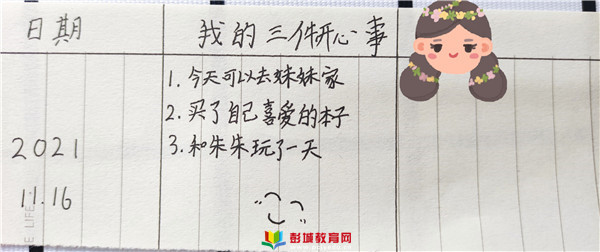 日期
我的三件开心事
1. 今天可以去妹妹家
2. 买了自己喜爱的本子
3. 和朱朱玩了一天
2021
11.16
E LIFE
彭城教育网